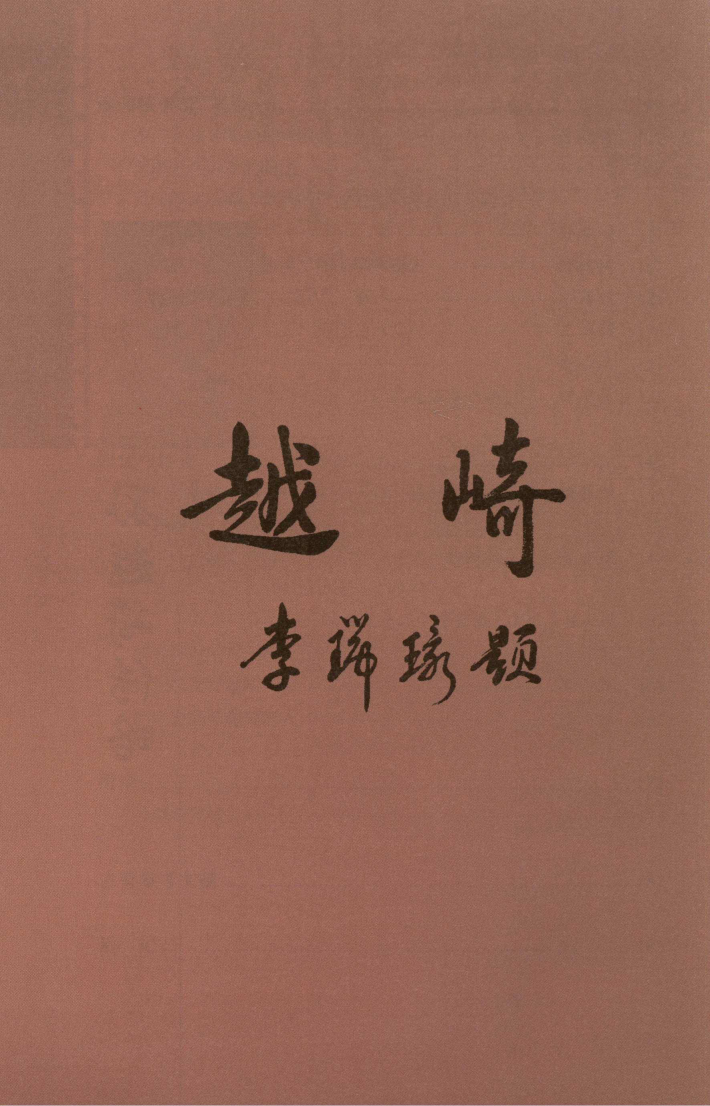 越崎
李瑞環题